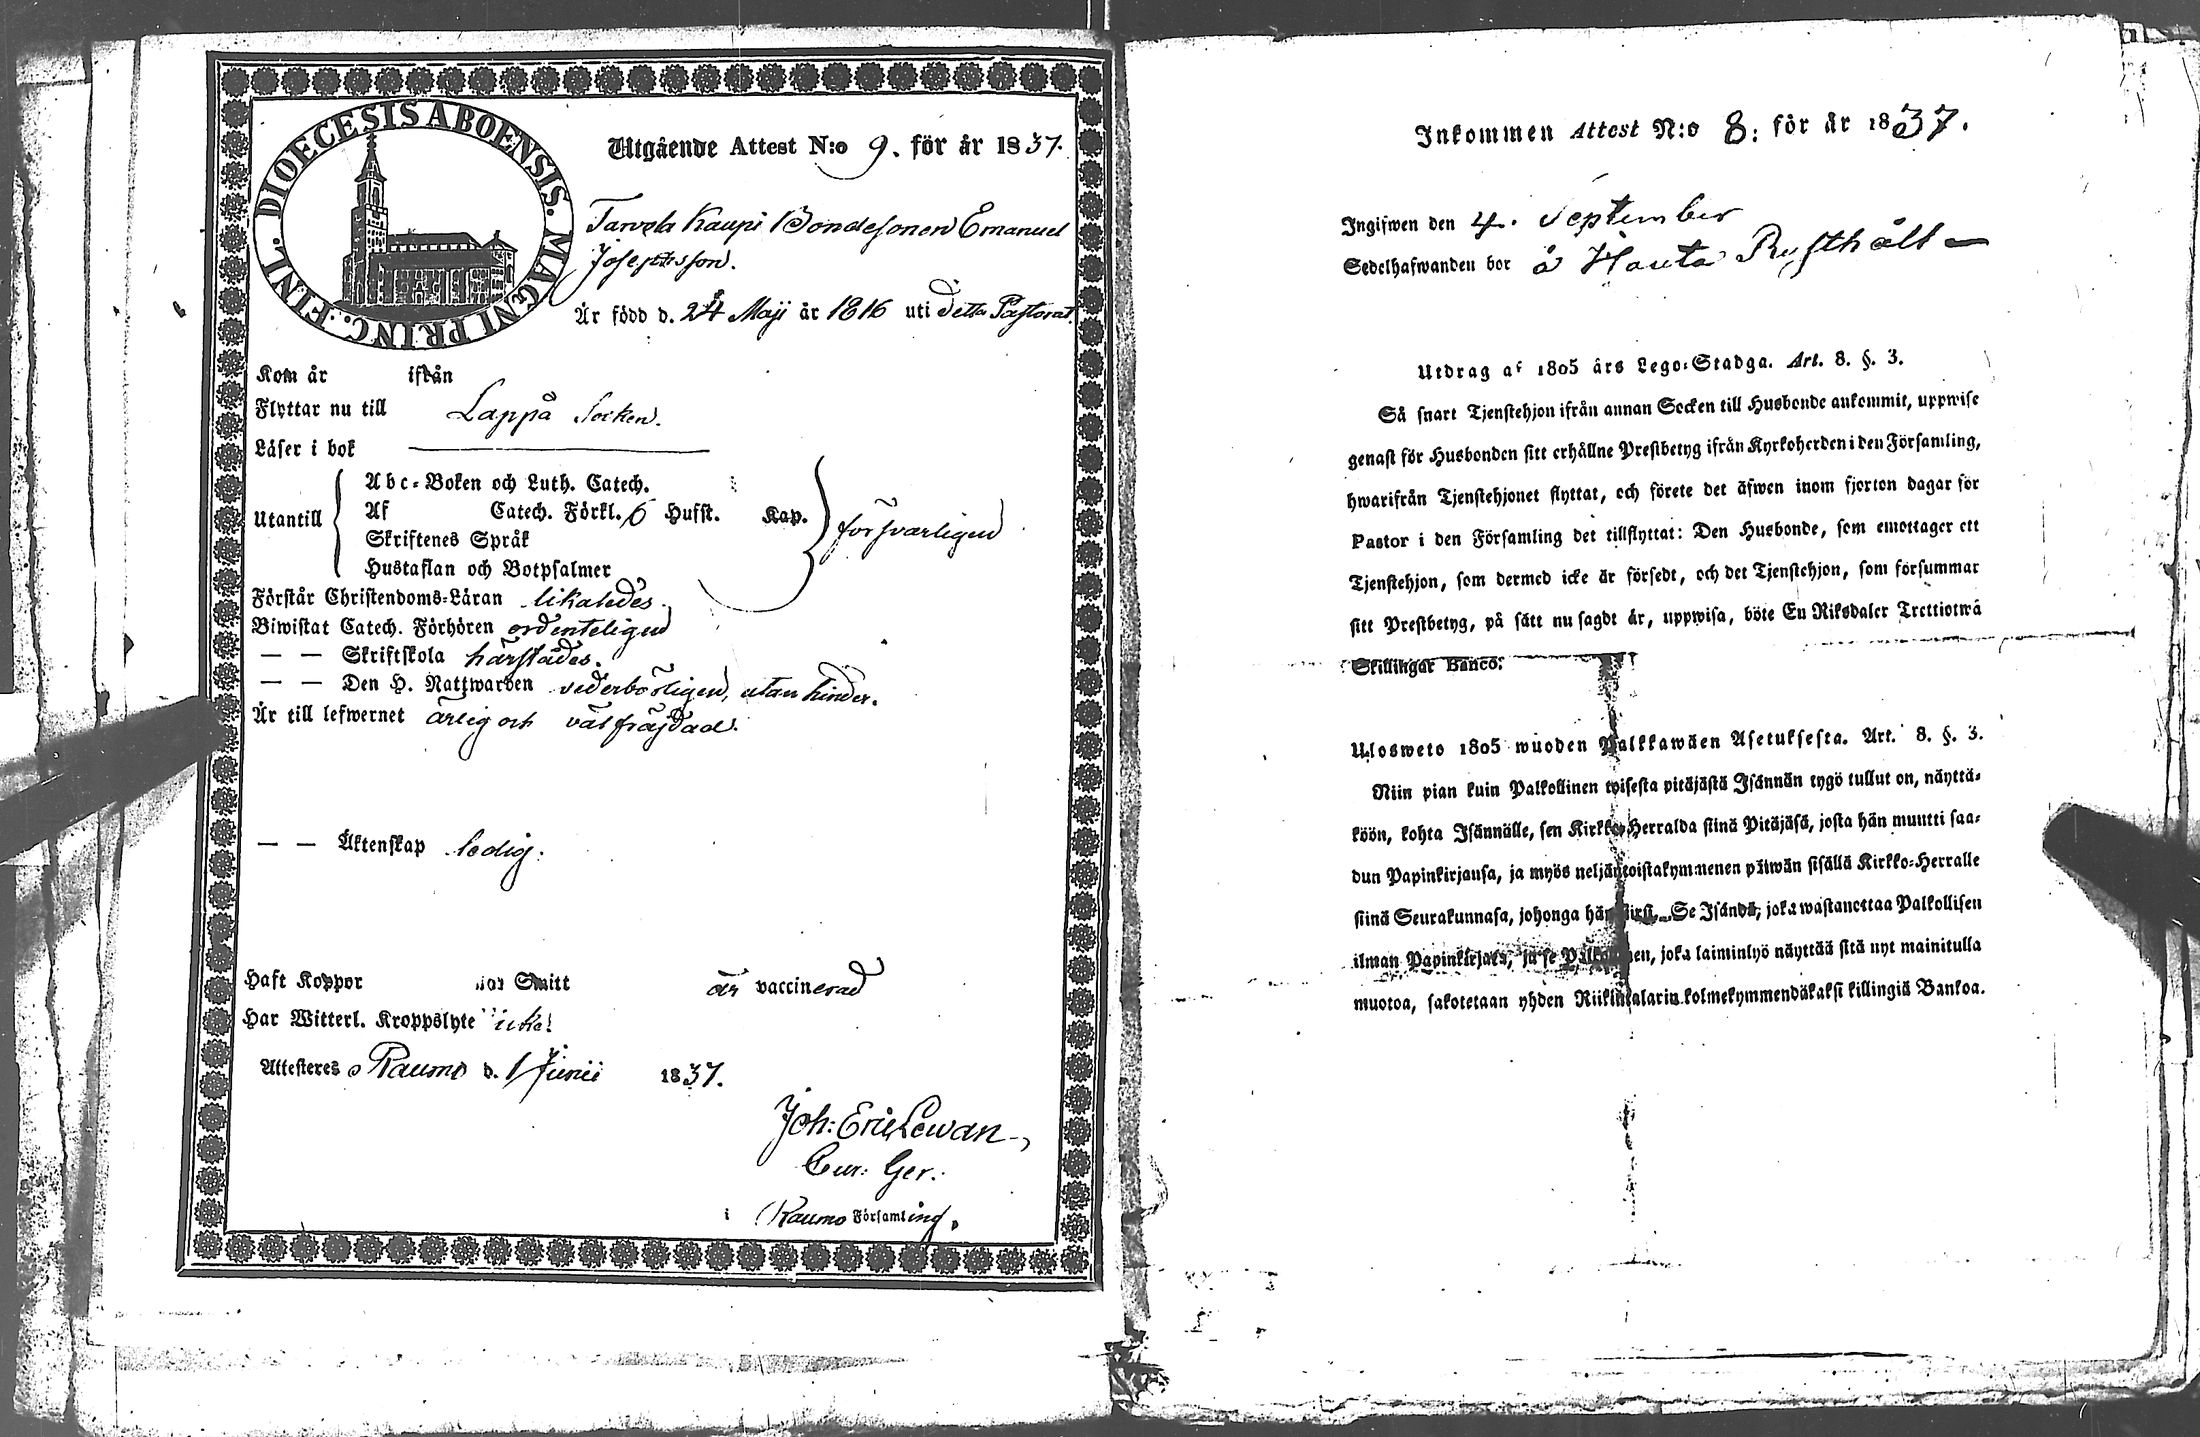 DIOECESIS ABOENSIS. MAGNI PRINC. FINL.
Utgående Attest N:o 9. för år 1837.
Tarvola Kaupi Bondesonen Emanuel
Josephsson.
Är född d. 24 Maji år 1816 uti detta Pastorat.
Kom år ifrån
Flyttar nu till Lappå Socken.
Läser i bok
Utantill
Abc-Boken och Luth. Catech.
Af Catech. Förkl. 6 Hufst. Kap. försvarligen
Skriftenes Språk
Hustaflan och Botpsalmer
Förstår Christendoms-Läran likaledes.
Biwistat Catech. Förhören ordenteligen
— — Skriftskola härstädes.
— — Den H. Nattwarden vederbörligen, utan hinder.
Är till lefwernet ärlig och välfräjdad.
— — Äktenskap ledig.
Haft Koppor Smitt är vaccinerad
Har Witterl. Kroppslyte icke.
Attesteres Raumo d. 1 Junii 1837.
Joh: Eric Lewan
Cur: Ger:
i Raumo Församling.
Inkommen Attest N:o 8: för år 1837.
Ingifwen den 4. September
Sedelhafwanden bor å Hauta Rusthåll —
Utdrag af 1805 års Lego-Stadga. Art. 8. §. 3.
Så snart Tjenstehjon ifrån annan Socken till Husbonde ankommit, uppwise
genast för Husbonden sitt erhållne Prestbetyg ifrån Kyrkoherden i den Församling,
hwarifrån Tjenstehjonet flyttat, och förete det äfwen inom fjorton dagar för
Pastor i den Församling det tillflyttat: Den Husbonde, som emottager ett
Tjenstehjon, som dermed icke är försedt, och det Tjenstehjon, som försummar
sitt Prestbetyg, på sätt nu sagdt är, uppwisa, böte En Riksdaler Trettiotwå
Skillingar Banco.
Ulosweto 1805 wuoden Palkkawäen Asetuksesta. Art. 8. §. 3.
Niin pian kuin Palkollinen toisesta pitäjästä Isännän tygö tullut on, näyttä-
köön, kohta Isännälle, sen Kirkko-Herralda siinä Pitäjäsä, josta hän muutti saa-
dun Papinkirjansa, ja myös neljäntoistakymmenen päiwän sisällä Kirkko-Herralle
siinä Seurakunnasa, johonga hän siirsi. Se Isändä, joka wastanottaa Palkollisen
ilman Papinkirjata, ja se Palkollinen, joka laiminlyö näyttää sitä nyt mainitulla
muotoa, sakotetaan yhden Riikintalarin kolmekymmendäkaksi killingiä Bankoa.